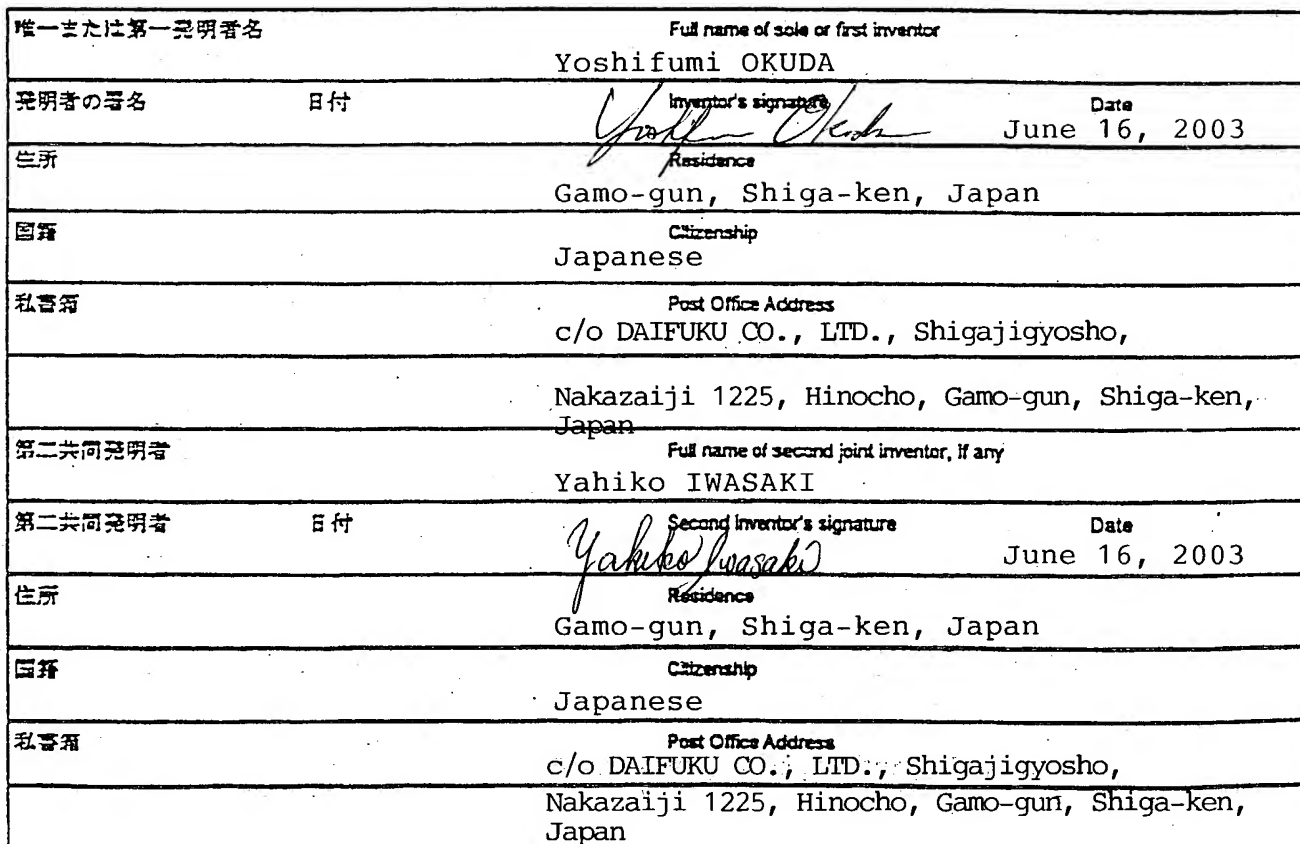 唯一または第一発明者名 Full name of sole or first inventor
Yoshifumi OKUDA
発明者の署名 日付 Inventor's signature Date
Yoshifumi Okuda June 16, 2003
住所 Residence
Gamo-gun, Shiga-ken, Japan
国籍 Citizenship
Japanese
私書箱 Post Office Address
c/o DAIFUKU CO., LTD., Shigajigyosho,
Nakazaiji 1225, Hinocho, Gamo-gun, Shiga-ken,
Japan
第二共同発明者 Full name of second joint inventor, if any
Yahiko IWASAKI
第二共同発明者 日付 Second inventor's signature Date
Yahiko Iwasaki June 16, 2003
住所 Residence
Gamo-gun, Shiga-ken, Japan
国籍 Citizenship
Japanese
私書箱 Post Office Address
c/o DAIFUKU CO., LTD., Shigajigyosho,
Nakazaiji 1225, Hinocho, Gamo-gun, Shiga-ken,
Japan